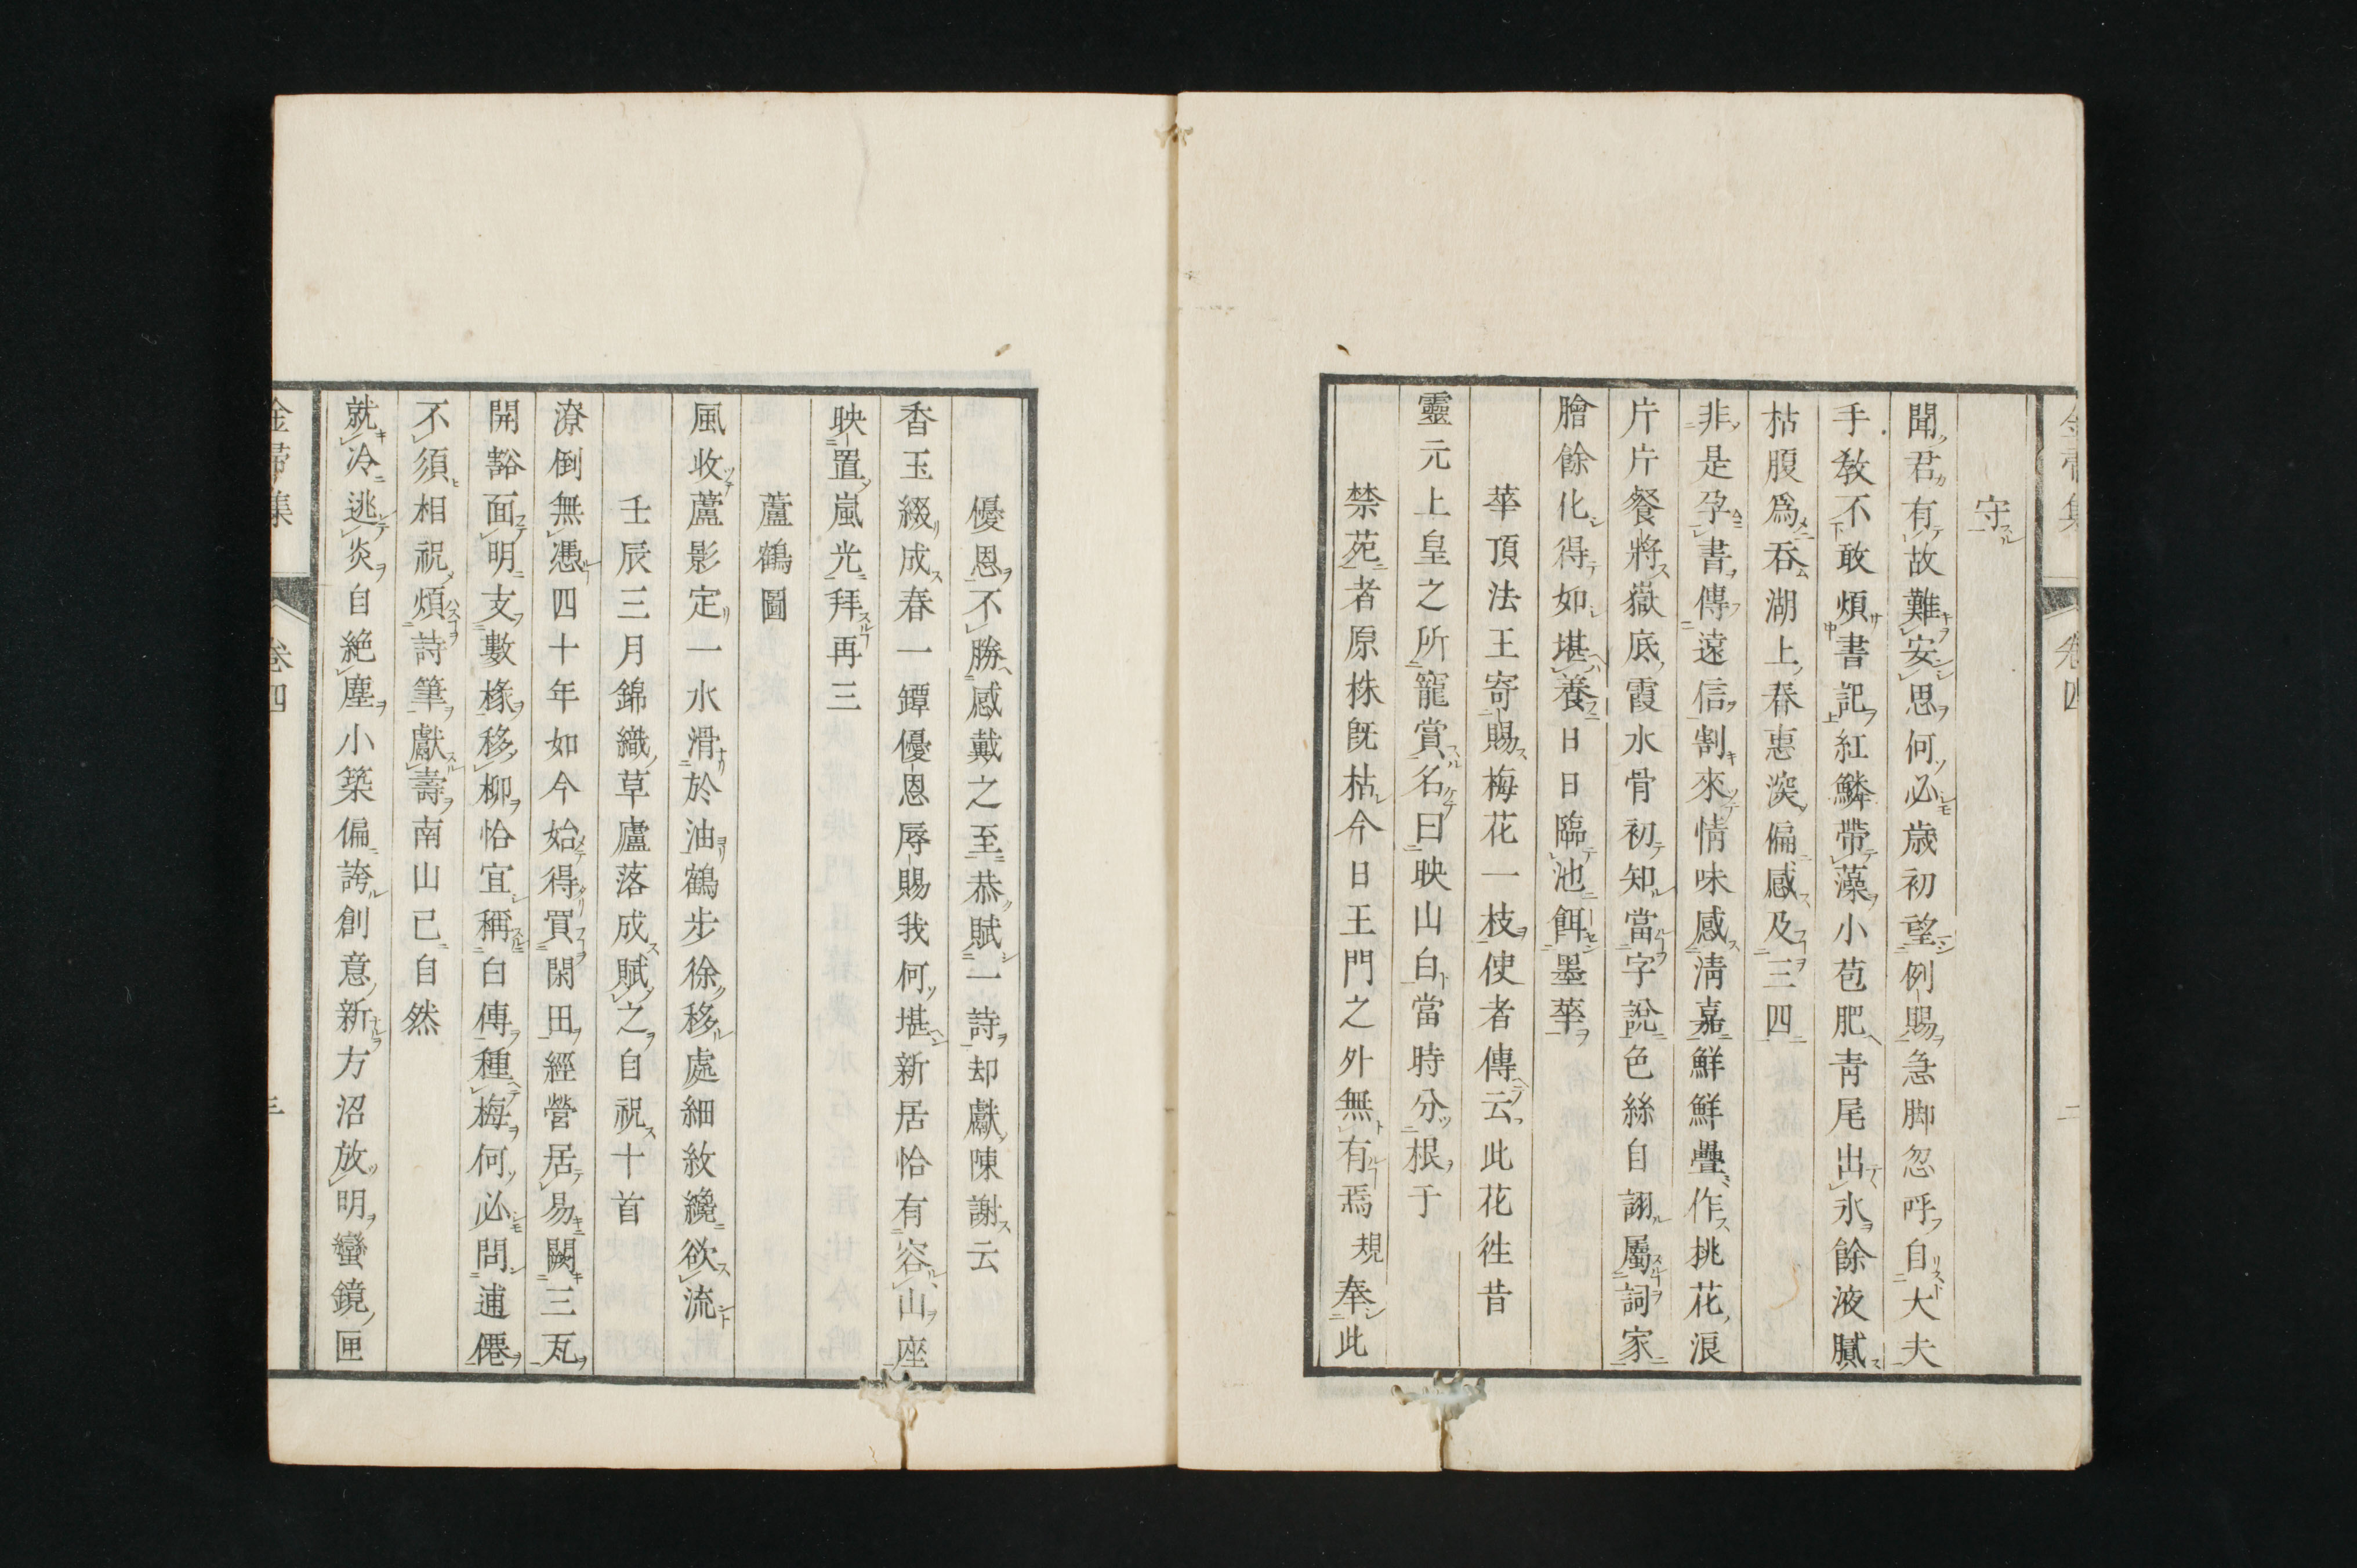 守
聞君有故難安思何必歳初望例賜急脚忽呼自大夫
手教不敢煩書記紅鱗帶藻小苞肥靑尾出氷餘液膩
枯腹爲呑湖上春惠深偏感及三四
非是孕書傳遠信割來情味感淸嘉鮮鮮疊作桃花浪
片片餐將嶽底霞水骨初知當字說色絲自詡屬詞家
膾餘化得如堪養日日臨池餌墨華
華頂法王寄賜梅花一枝使者傳云此花徃昔
靈元上皇之所寵賞名曰映山白當時分根于
禁苑者原株既枯今日王門之外無有焉規奉此
優恩不勝感戴之至恭賦一詩却獻陳謝云
香玉綴成春一罈優恩辱賜我何堪新居恰有容山座
映置嵐光拜再三
蘆鶴圖
風收蘆影定一水滑於油鶴步徐移處細紋纔欲流
壬辰三月錦織草廬落成賦之自祝十首
潦倒無憑四十年如今始得買閑田經營居易闕三瓦
開豁面明支數椽移柳恰宜稱白傳種梅何必問逋僊
不須相祝煩詩筆獻壽南山已自然
就冷逃炎自絶塵小築偏誇創意新方沼放明蠻鏡匣
卷四